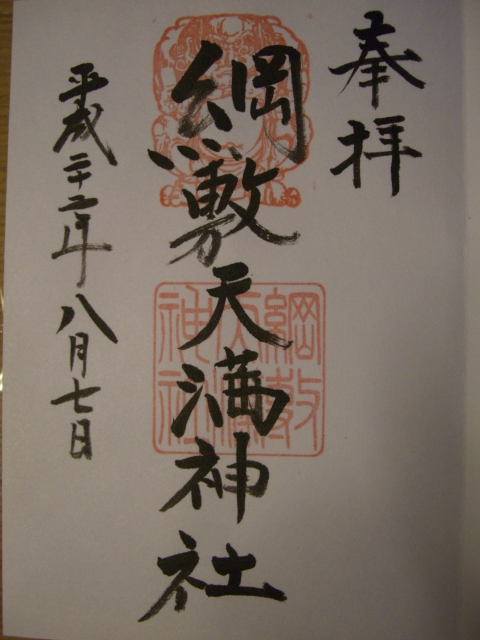 奉拝
綱敷天満神社
平成二十二年八月七日
綱敷
天満
神社